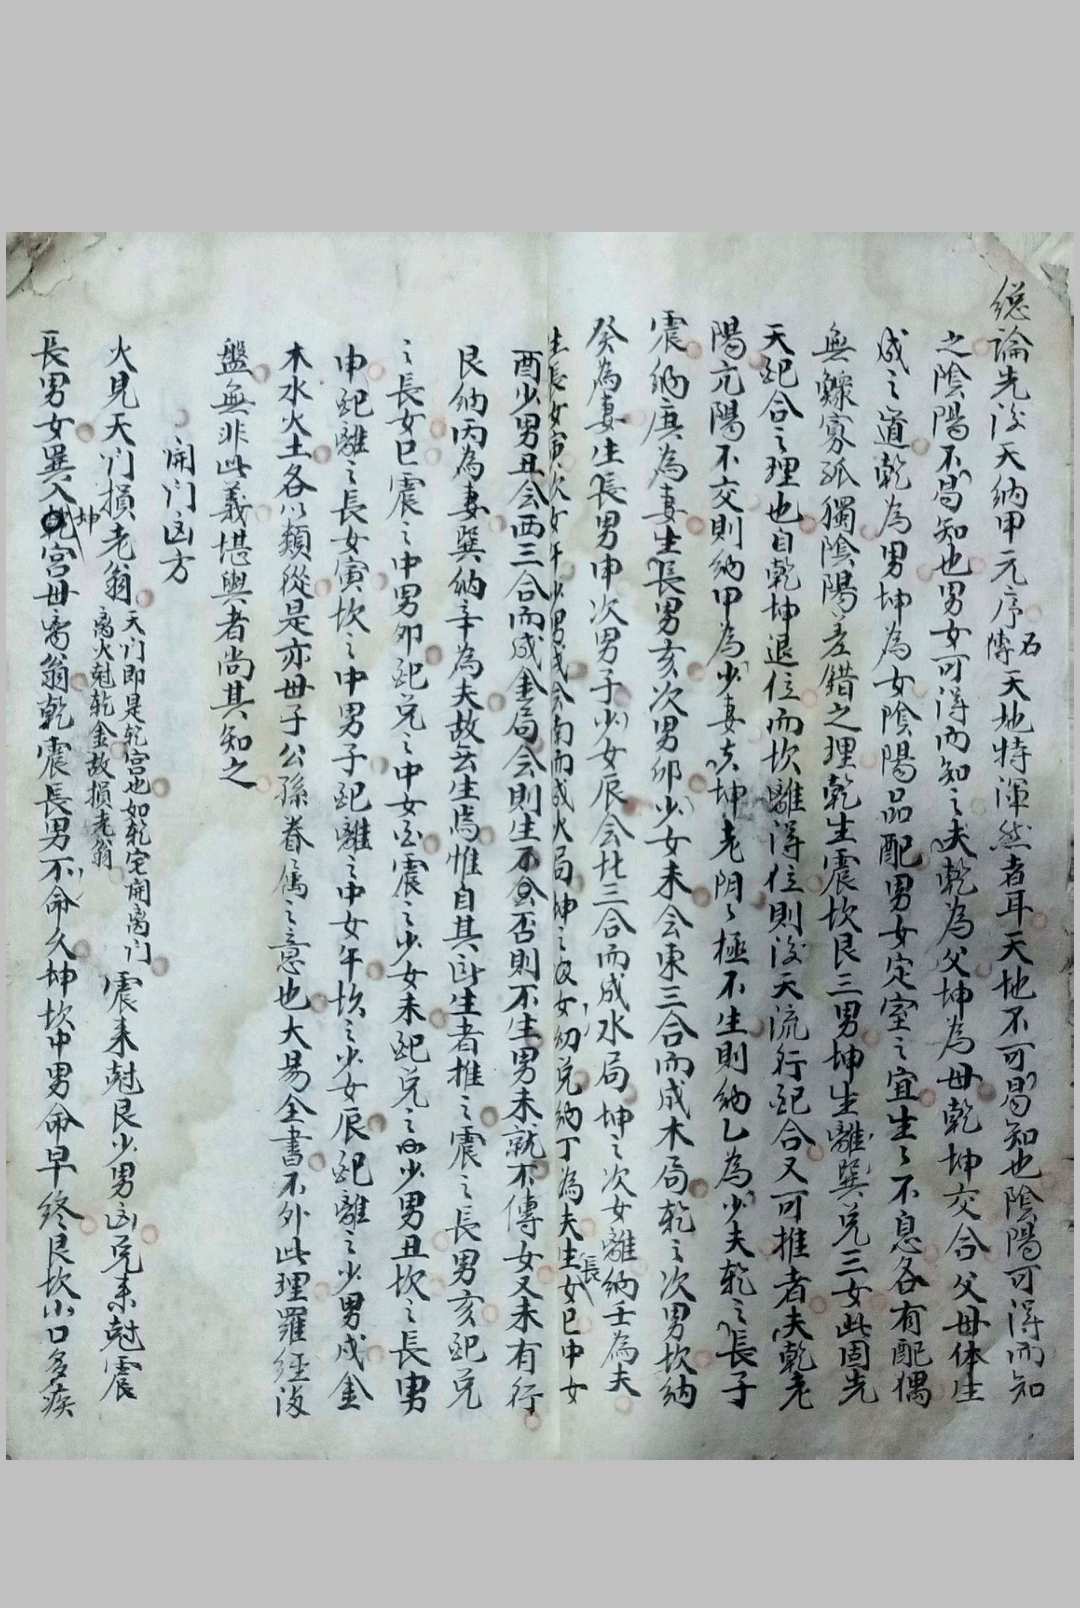 總論先後天納甲元序 石傳 天地特渾然者耳天地不可曷知也陰陽可得而知
之陰陽不曷知也男女可得而知之夫乾為父坤為母乾坤交合父母体生
成之道乾為男坤為女陰陽品配男女定室之宜生々不息各有配偶
無鰥寡孤獨陰陽差錯之理乾生震坎艮三男坤生離巽兌三女此固先
天配合之理也自乾坤退位而坎離得位則後天流行配合又可推者夫乾老
陽亢陽不交則納甲為少妻夫坤老阴々極不生則納乙為少夫乾之長子
震納庚為妻生長男亥次男卯少女未会東三合而成木局乾之次男坎納
癸為妻生長男申次男子少女辰会北三合而成水局坤之次女離納壬為夫
生長女寅次女午少男戌会南而成火局坤之次女幼兌納丁為夫生長女巳中女
酉少男丑会西三合而成金局会則生不会否則不生男未就不傳女又未有行
艮納丙為妻巽納辛為夫故無生焉惟自其所生者推之震之長男亥配兌
之長女巳震之中男卯配兌之中女酉震之少女未配兌之少男丑坎之長男
申配離之長女寅坎之中男子配離之中女午坎之少女辰配離之少男戌金
木水火土各以類從是亦母子公孫眷属之意也大易全書不外此理羅經後
盤無非此義堪輿者尚其知之
開门凶方
火見天门損老翁 天门即是乾宫也如乾宅開离门离火尅乾金故損老翁 震来尅艮少男凶兌来尅震
長男女巽入坤宫母离翁乾震長男不命久坤坎中男命早终艮坎小口多疾